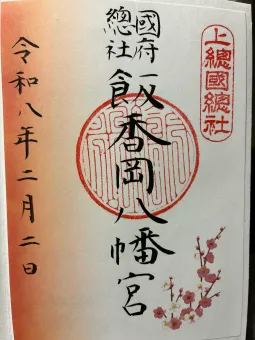 上總國總社
國府
總社
飯香岡八幡宮
令和八年二月二日